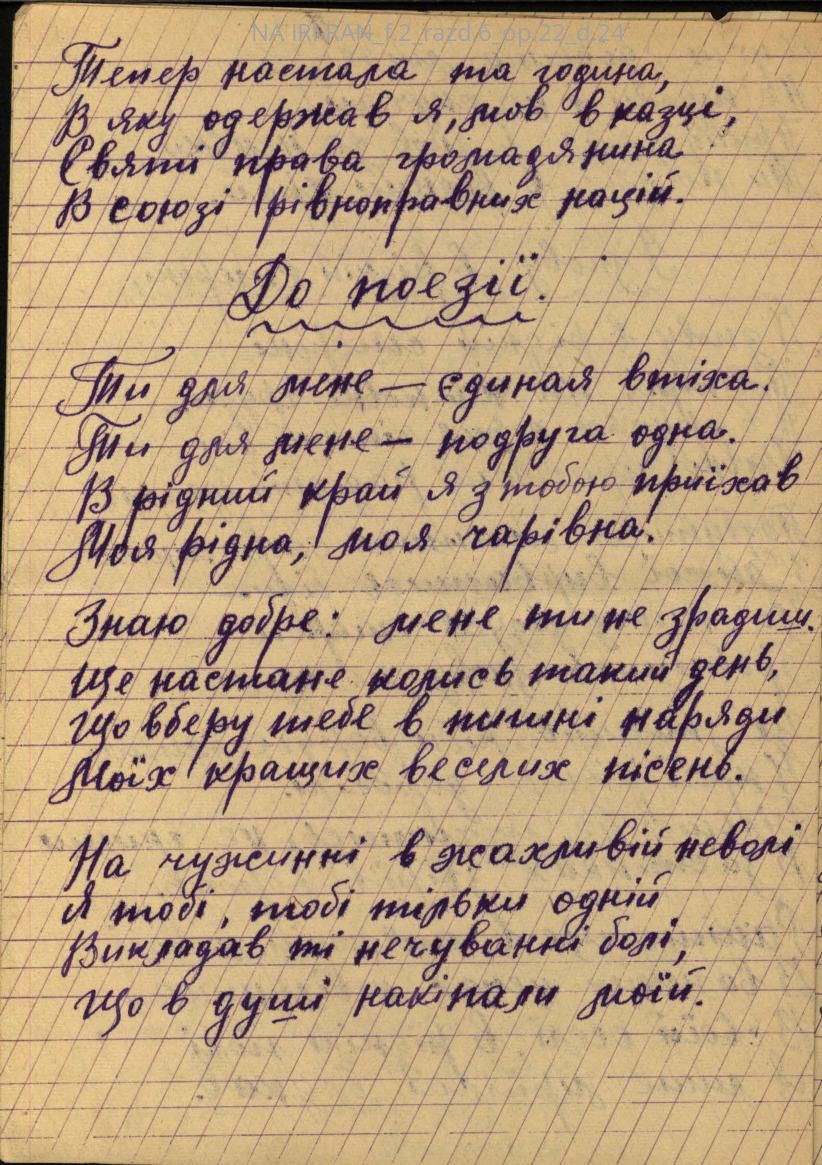 NA IRI RAN_f.2_razd.6_op.22_d.24
Тепер настала та година,
В яку одержав я, мов в казці,
Святі права громадянина
В союзі рівноправних націй.
До поезії.
Ти для мене — єдиная втіха.
Ти для мене — подруга одна.
В рідний край я з тобою приїхав
Моя рідна, моя чарівна.
Знаю добре: мене ти не зрадиш.
Ще настане колись такий день,
Що вберу тебе в пишні наряди
Моїх кращих веселих пісень.
На чужинні в жахливій неволі
Я тобі, тобі тільки одній
Викладав ті нечуванні болі,
Що в душі накіпали моїй.